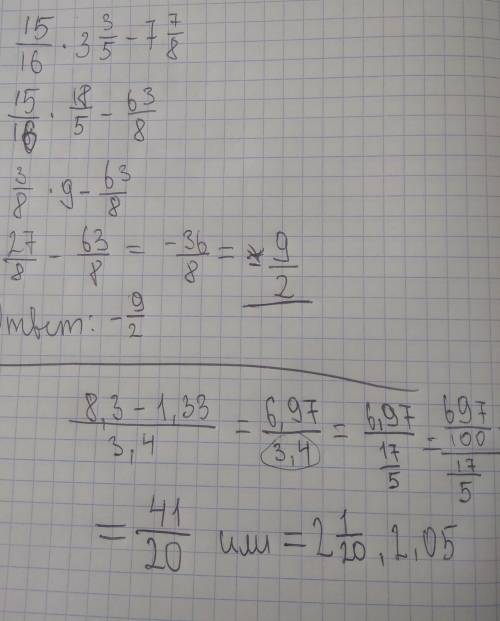 15/16 · 3 3/5 - 7 7/8
15/16 · 18/5 - 63/8
3/8 · 9 - 63/8
27/8 - 63/8 = -36/8 = - 9/2
Ответ: - 9/2
8,3 - 1,33 / 3,4 = 6,97 / 3,4 = 6,97 / 17/5 = 697/100 / 17/5
= 41/20 или = 2 1/20, 2,05